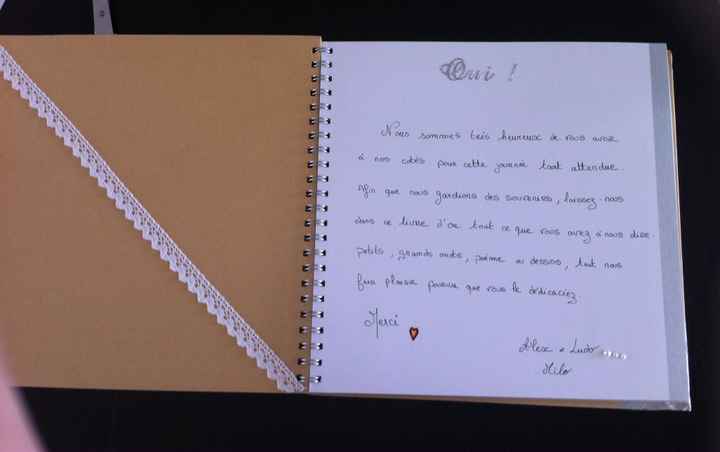 Oui !
Nous sommes très heureux de vous avoir
à nos côtés pour cette journée tant attendue.
Afin que nous gardions des souvenirs, laissez-nous
dans ce livre d'or tout ce que vous avez à nous dire.
petits, grands mots, poème ou dessins, tout nous
fera plaisir pourvu que vous le dédicaciez.
Merci
Alex & Ludo
Milo